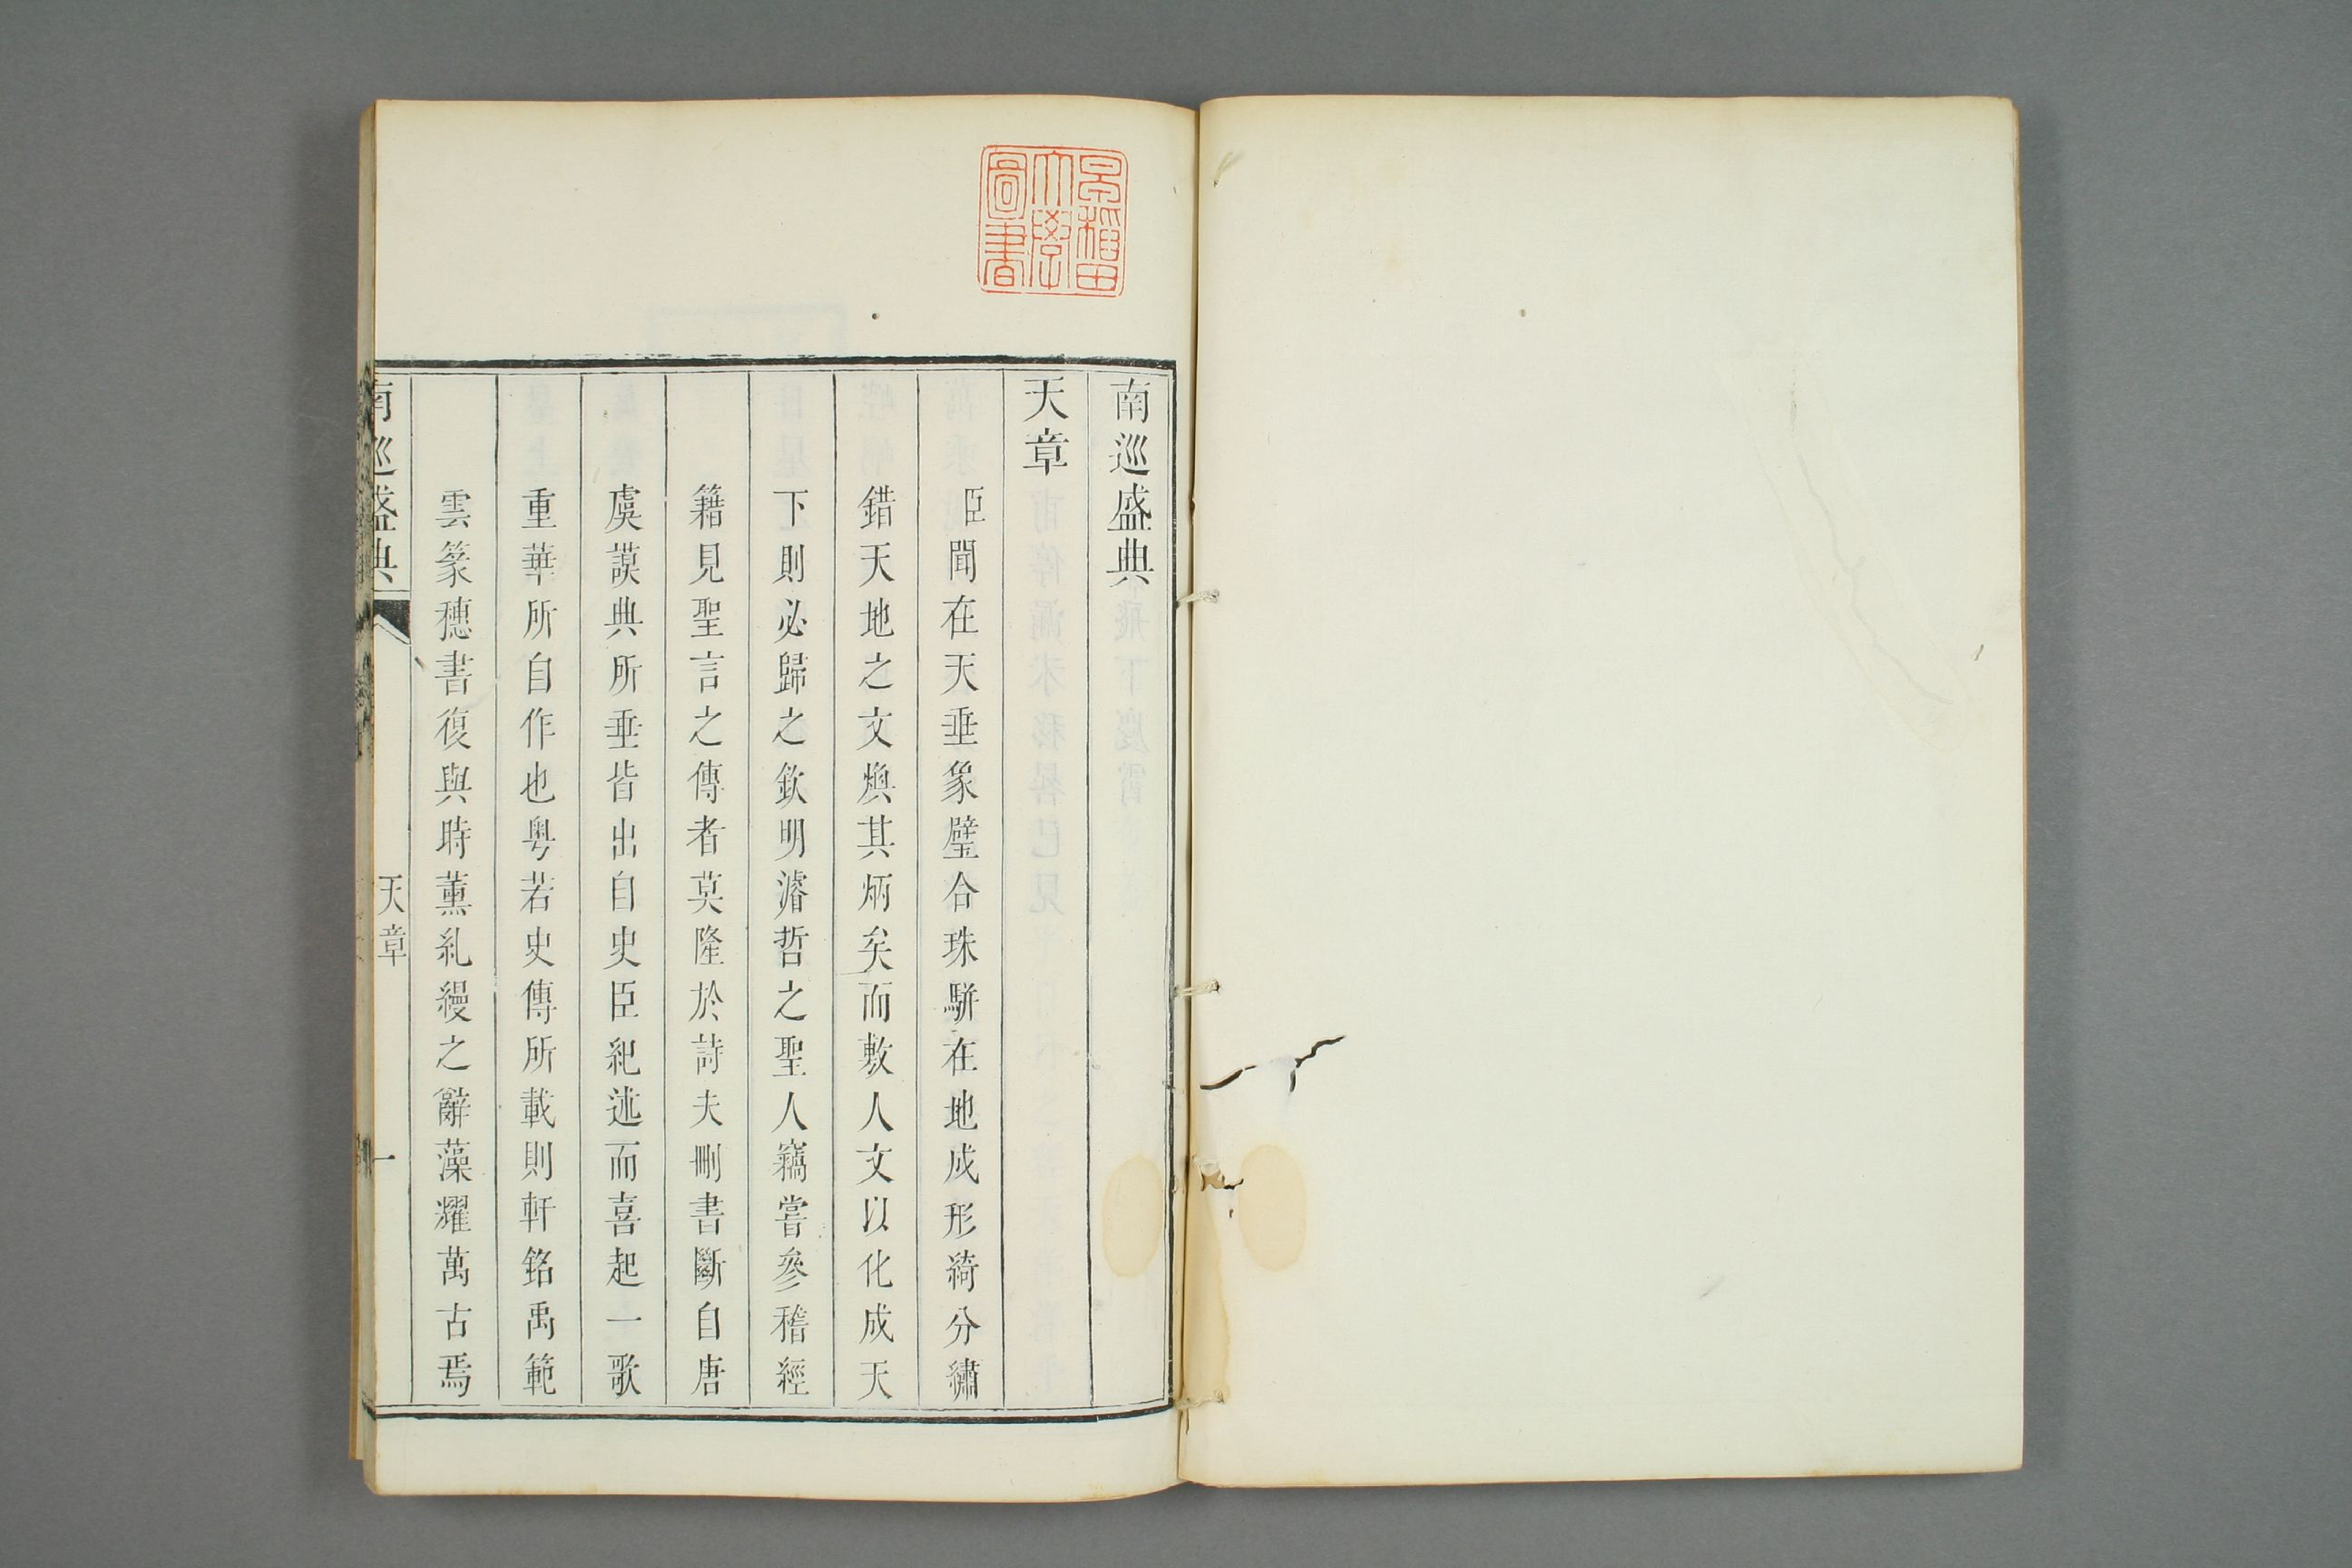 早稲田
大學
圖書
南巡盛典
天章
臣聞在天垂象璧合珠駢在地成形綺分繡
錯天地之文煥其炳矣而敷人文以化成天
下則必歸之欽明濬哲之聖人竊嘗參稽經
籍見聖言之傳者莫隆於詩夫刪書斷自唐
虞謨典所垂皆出自史臣紀述而喜起一歌
重華所自作也粵若史傳所載則軒銘禹範
雲篆穗書復與時薰糺縵之辭藻耀萬古焉
南巡盛典
天章
一